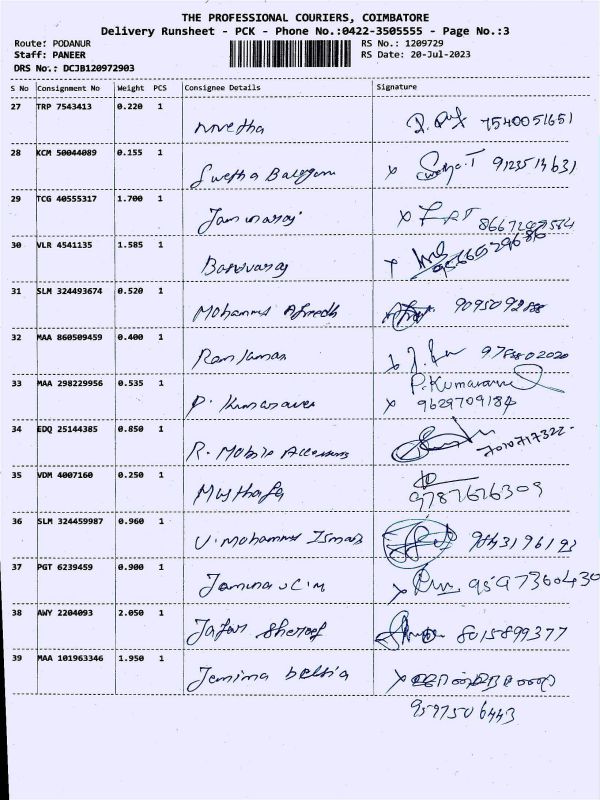 THE PROFESSIONAL COURIERS, COIMBATORE
Delivery Runsheet - PCK - Phone No.:0422-3505555 - Page No.:3
Route: PODANUR RS No.: 1209729
Staff: PANEER RS Date: 20-Jul-2023
DRS No.: DCJB120972903
S No Consignment No Weight PCS Consignee Details Signature
27 TRP 7543413 0.220 1
Nivetha 7540051651
28 KCM 50044089 0.155 1
Swetha 9123514631
29 TCG 40555317 1.700 1
30 VLR 4541135 1.585 1
31 SLM 324493674 0.520 1
Mohammed
32 MAA 860509459 0.400 1
33 MAA 298229956 0.535 1
P. Kumaravel
9629709184
34 EDQ 25144385 0.850 1
R. Mobile 7010717322
35 VDM 4007160 0.250 1
Musthafa 9787676309
36 SLM 324459987 0.960 1
V. Mohammed Ismail
37 PGT 6239459 0.900 1
9597360430
38 AWY 2204093 2.050 1
Jafar Shereef 8015899377
39 MAA 101963346 1.950 1
Jemima
9597506443